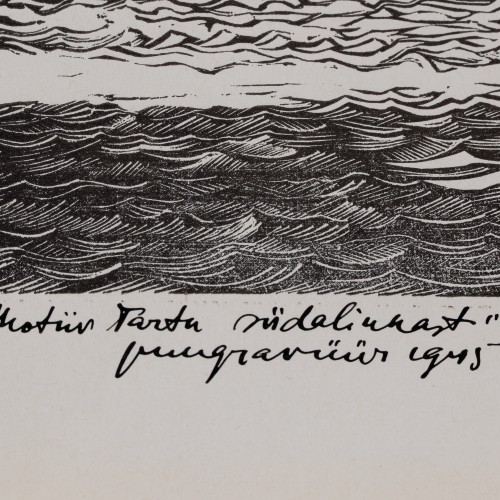 Motiiv Tartu südalinnast"
puugravüür 1945